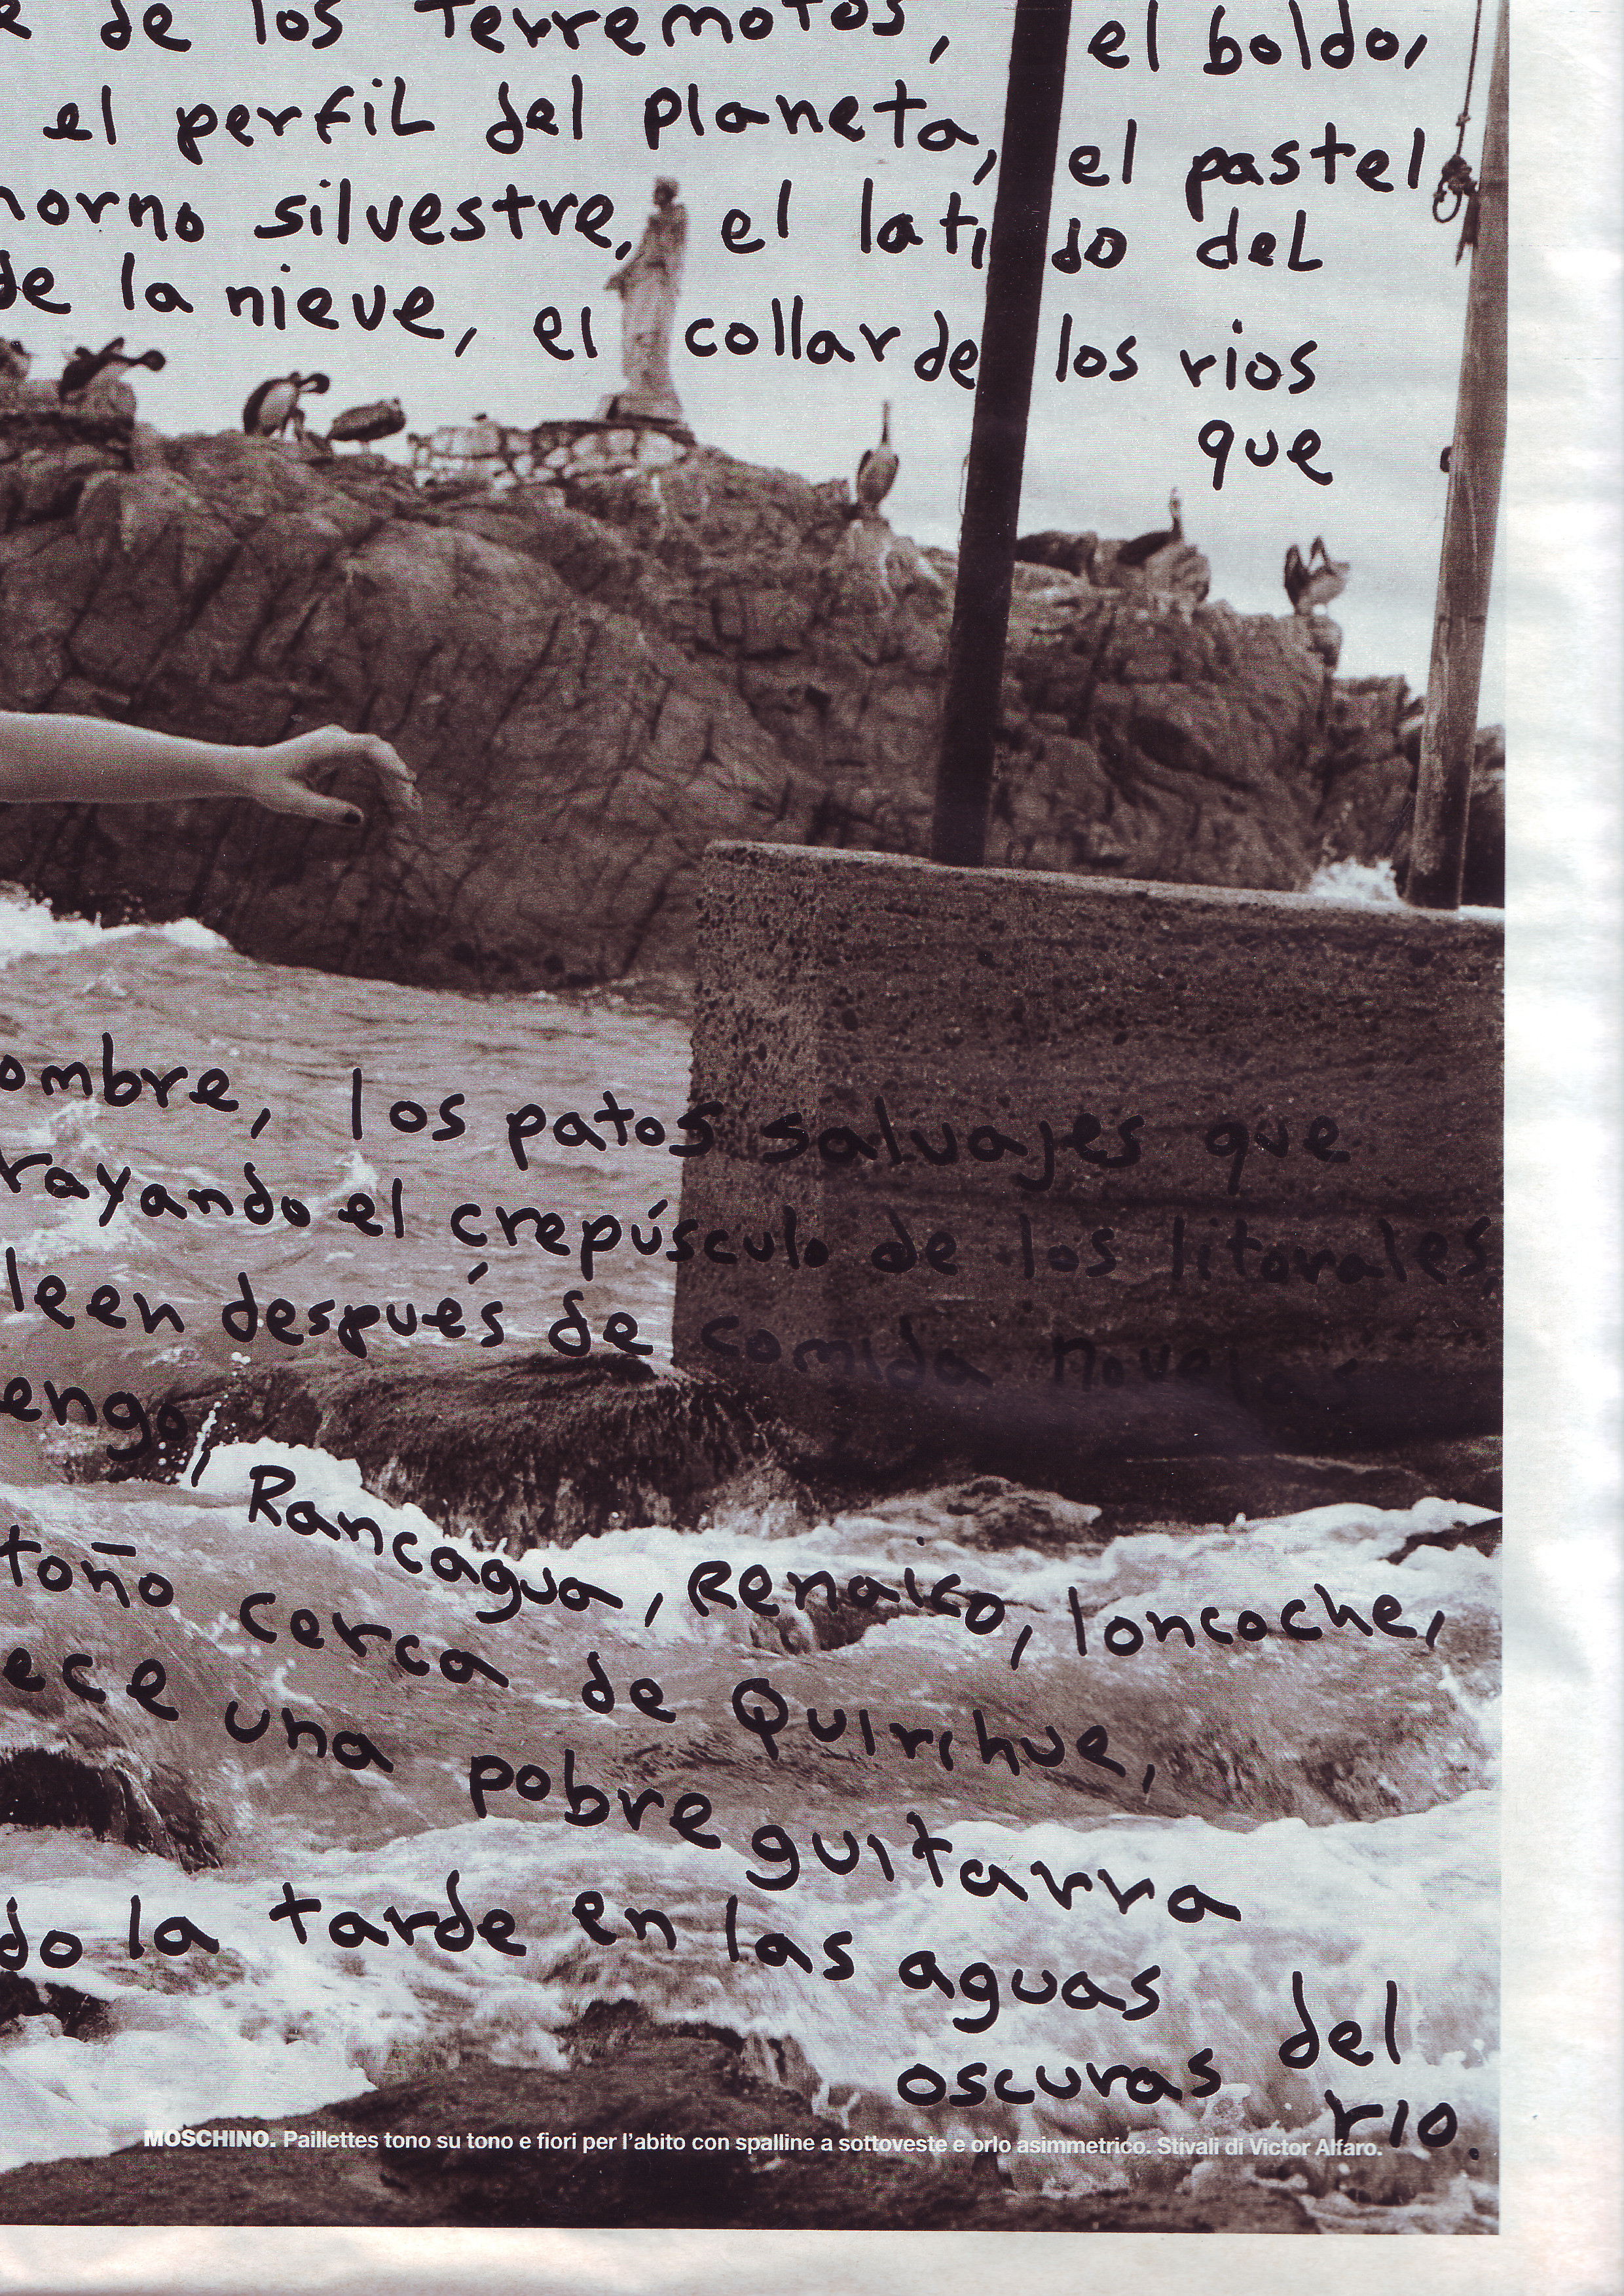 e de los terremotos, el boldo,
el perfil del planeta, el pastel
horno silvestre, el latido del
de la nieve, el collar de los rios
que
ombre, los patos salvajes que
rayando el crepúsculo de los litorales,
leen después de comida novelas
engo, Rancagua, Renaico, loncoche,
toño cerca de Quirihue,
ece una pobre guitarra
do la tarde en las aguas
oscuras del rio.
MOSCHINO. Paillettes tono su tono e fiori per l'abito con spalline a sottoveste e orlo asimmetrico. Stivali di Victor Alfaro.